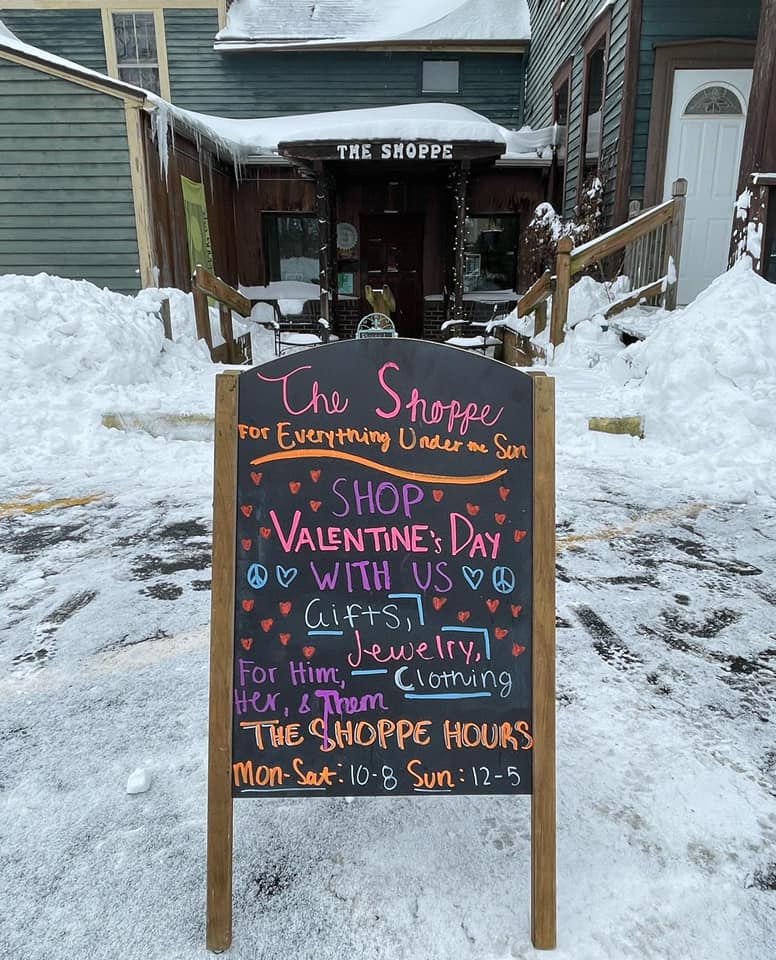 THE SHOPPE
The Shoppe
For Everything Under the Sun
SHOP
VALENTINE's DAY
WITH US
Gifts,
Jewelry,
Clothing
For Him,
Her, & Them
THE SHOPPE HOURS
Mon-Sat: 10-8 Sun: 12-5